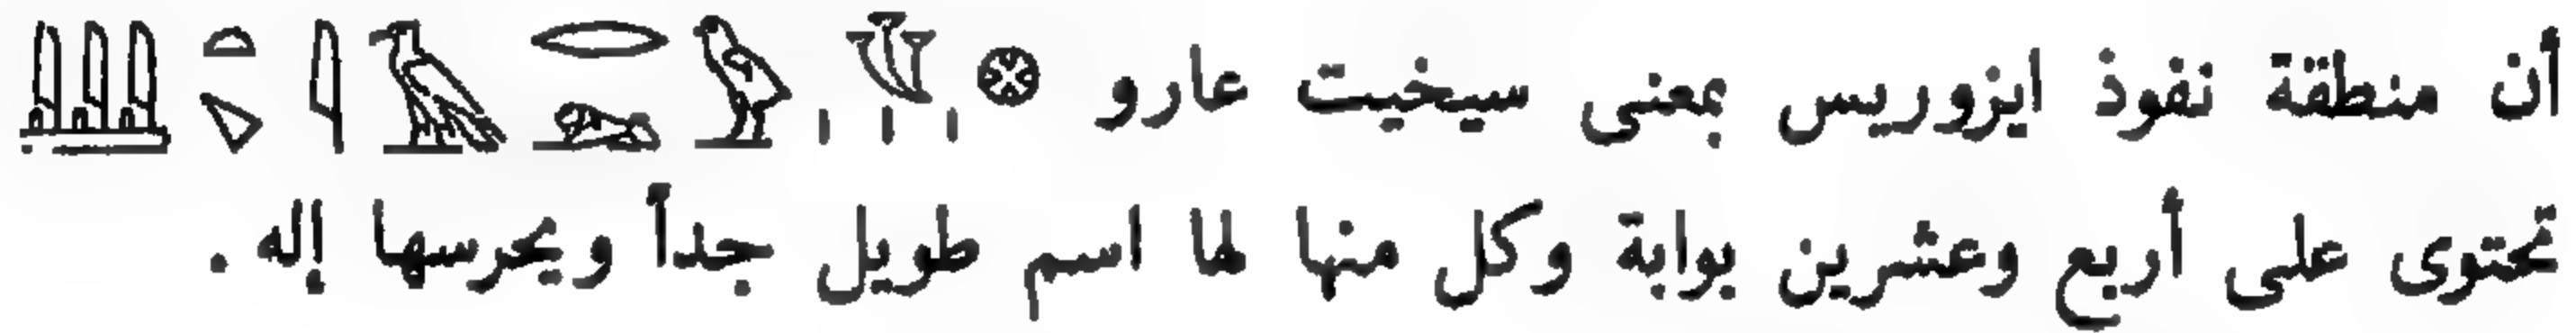 أن منطقة نفوذ ايزوريس بمعنى سيخيت عارو
تحتوى على أربع وعشرين بوابة وكل منها لها اسم طويل جداً ويحرسها إله .